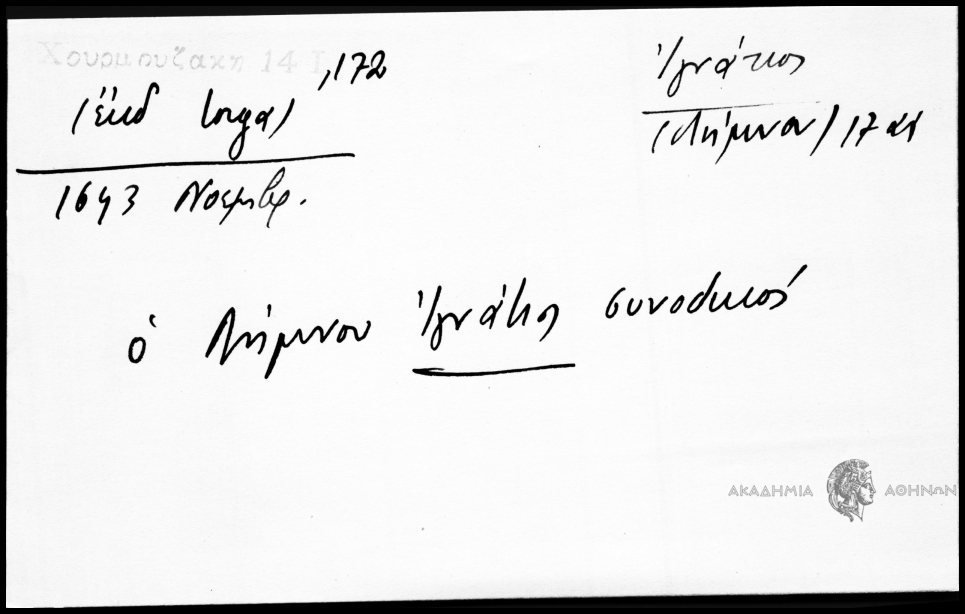 Χουρμουζακη 14 Ι, 172
(ἔκδ Iorga)
1643 Νοεμβρ.
Ἰγνάτιος
(Λήμνου) 17 αι
ὁ Λήμνου Ἰγνάτιος συνοδικός
ΑΚΑΔΗΜΙΑ ΑΘΗΝΩΝ